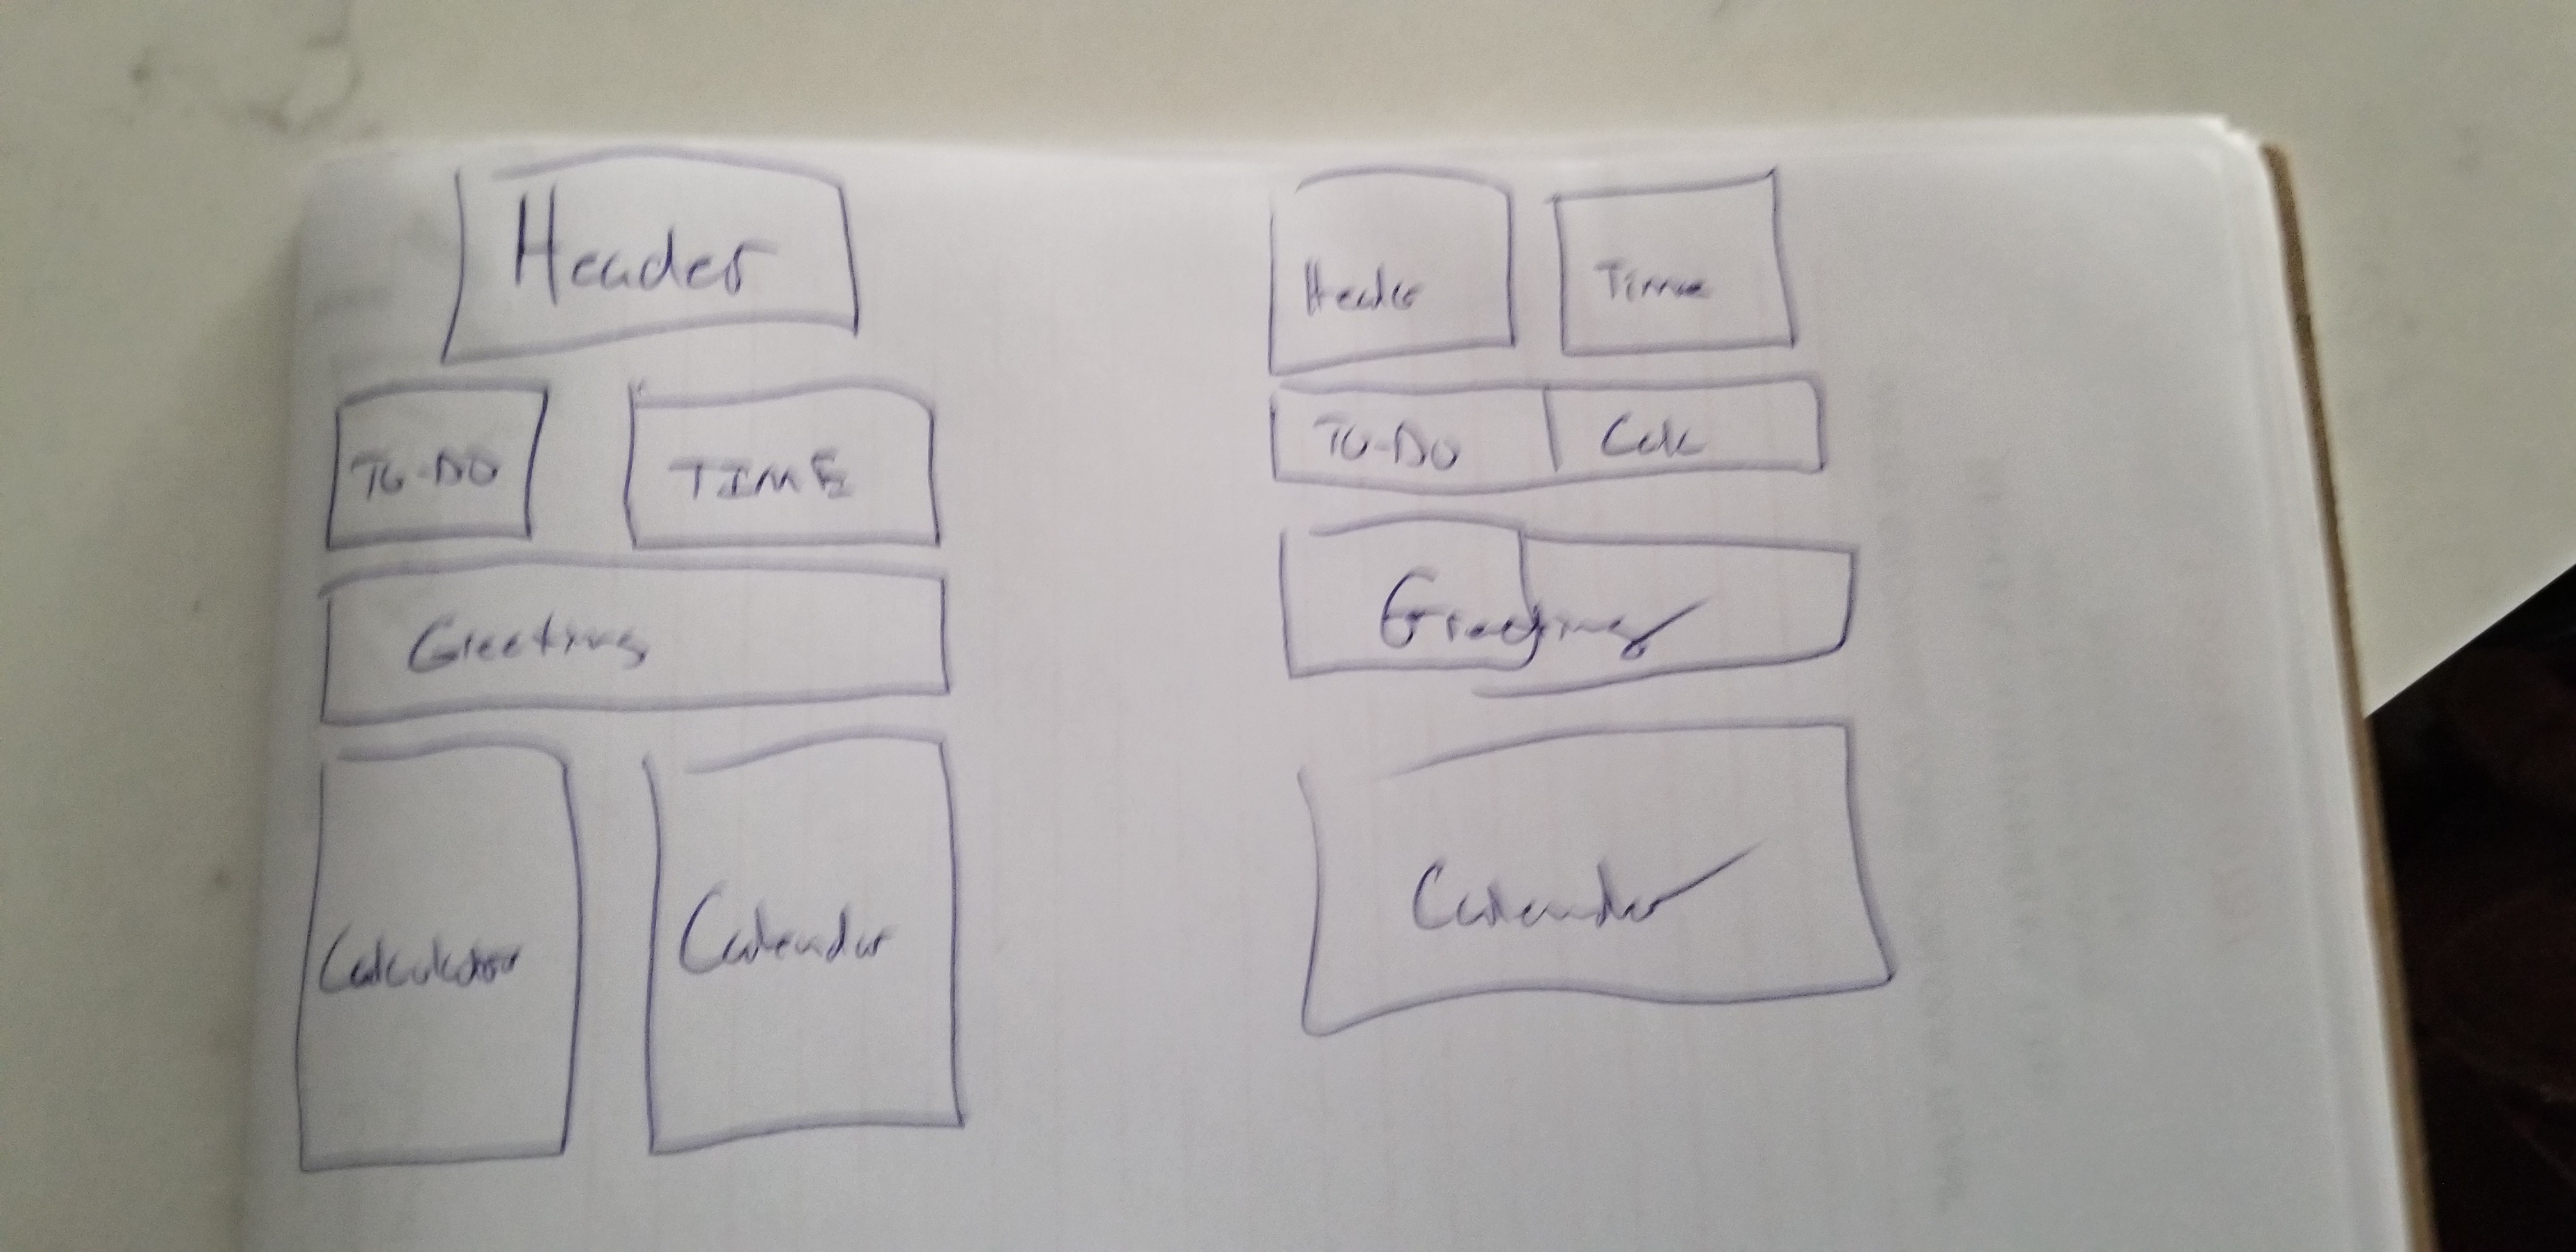 Header
TO-DO
TIME
Greetings
Calculator
Calendar
Header
Time
TO-DO
Calc
Greetings
Calendar